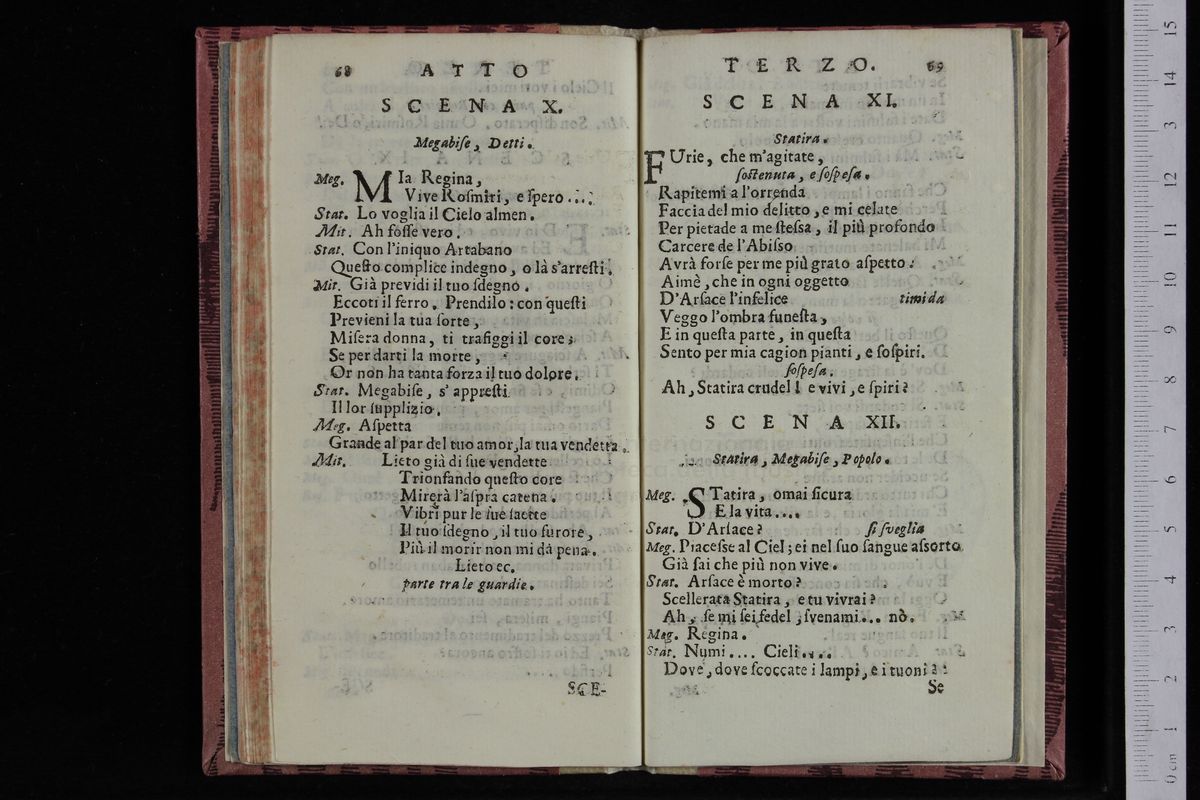 68 ATTO
SCENA X.
Megabiſe, Detti.
Meg. MIa Regina,
Vive Roſmiri, e ſpero ....
Stat. Lo voglia il Cielo almen.
Mit. Ah foſſe vero.
Stat. Con l'iniquo Artabano
Queſto complice indegno, o là s'arreſti.
Mit. Già previdi il tuo ſdegno.
Eccoti il ferro. Prendilo: con queſti
Previeni la tua ſorte,
Miſera donna, ti trafiggi il core;
Se per darti la morte,
Or non ha tanta forza il tuo dolore.
Stat. Megabiſe, s' appreſti
Il lor ſupplizio.
Meg. Aſpetta
Grande al par del tuo amor, la tua vendetta.
Mit. Lieto già di ſue vendette
Trionfando queſto core
Mirerà l'aſpra catena.
Vibri pur le ſue ſaette
Il tuo ſdegno, il tuo furore,
Più il morir non mi dà pena.
Lieto ec.
parte tra le guardie.
SCE-
TERZO. 69
SCENA XI.
Statira.
FUrie, che m'agitate,
ſoſtenuta, e ſoſpeſa.
Rapitemi a l'orrenda
Faccia del mio delitto, e mi celate
Per pietade a me ſteſsa, il più profondo
Carcere de l'Abiſso
Avrà forſe per me più grato aſpetto:
Aimè, che in ogni oggetto
D'Arſace l'infelice timida
Veggo l'ombra funeſta,
E in queſta parte, in queſta
Sento per mia cagion pianti, e ſoſpiri.
ſoſpeſa.
Ah, Statira crudel! e vivi, e ſpiri?
SCENA XII.
Statira, Megabiſe, Popolo.
Meg. STatira, omai ſicura
E la vita....
Stat. D'Arſace? ſi ſveglia
Meg. Piaceſse al Ciel; ei nel ſuo ſangue aſsorto
Già ſai che più non vive.
Stat. Arſace è morto?
Scellerata Statira, e tu vivrai?
Ah, ſe mi ſei fedel, ſvenami... nò.
Meg. Regina.
Stat. Numi.... Cieli....
Dove, dove ſcoccate i lampi, e i tuoni?
Se